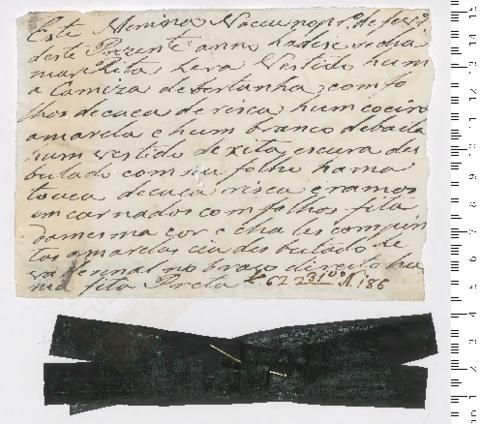 Este Menina Naceu no pr.º de fevr.º
deste Prezente anno hade se
mar Rita, leva Vestido hum
a Camiza de bertanha, com fo
lhos de caça de risca, hum coeiro
amarelo e hum branco de baêta
hum vestido de xita escura des
butado com hu folho huma
touca de caça risca e ramos
encarnados com folhos fita
damesma cor e chales com pin
tas amarelas

va sinal no braço direito hu
ma fita Preta L.º 62 N. 186